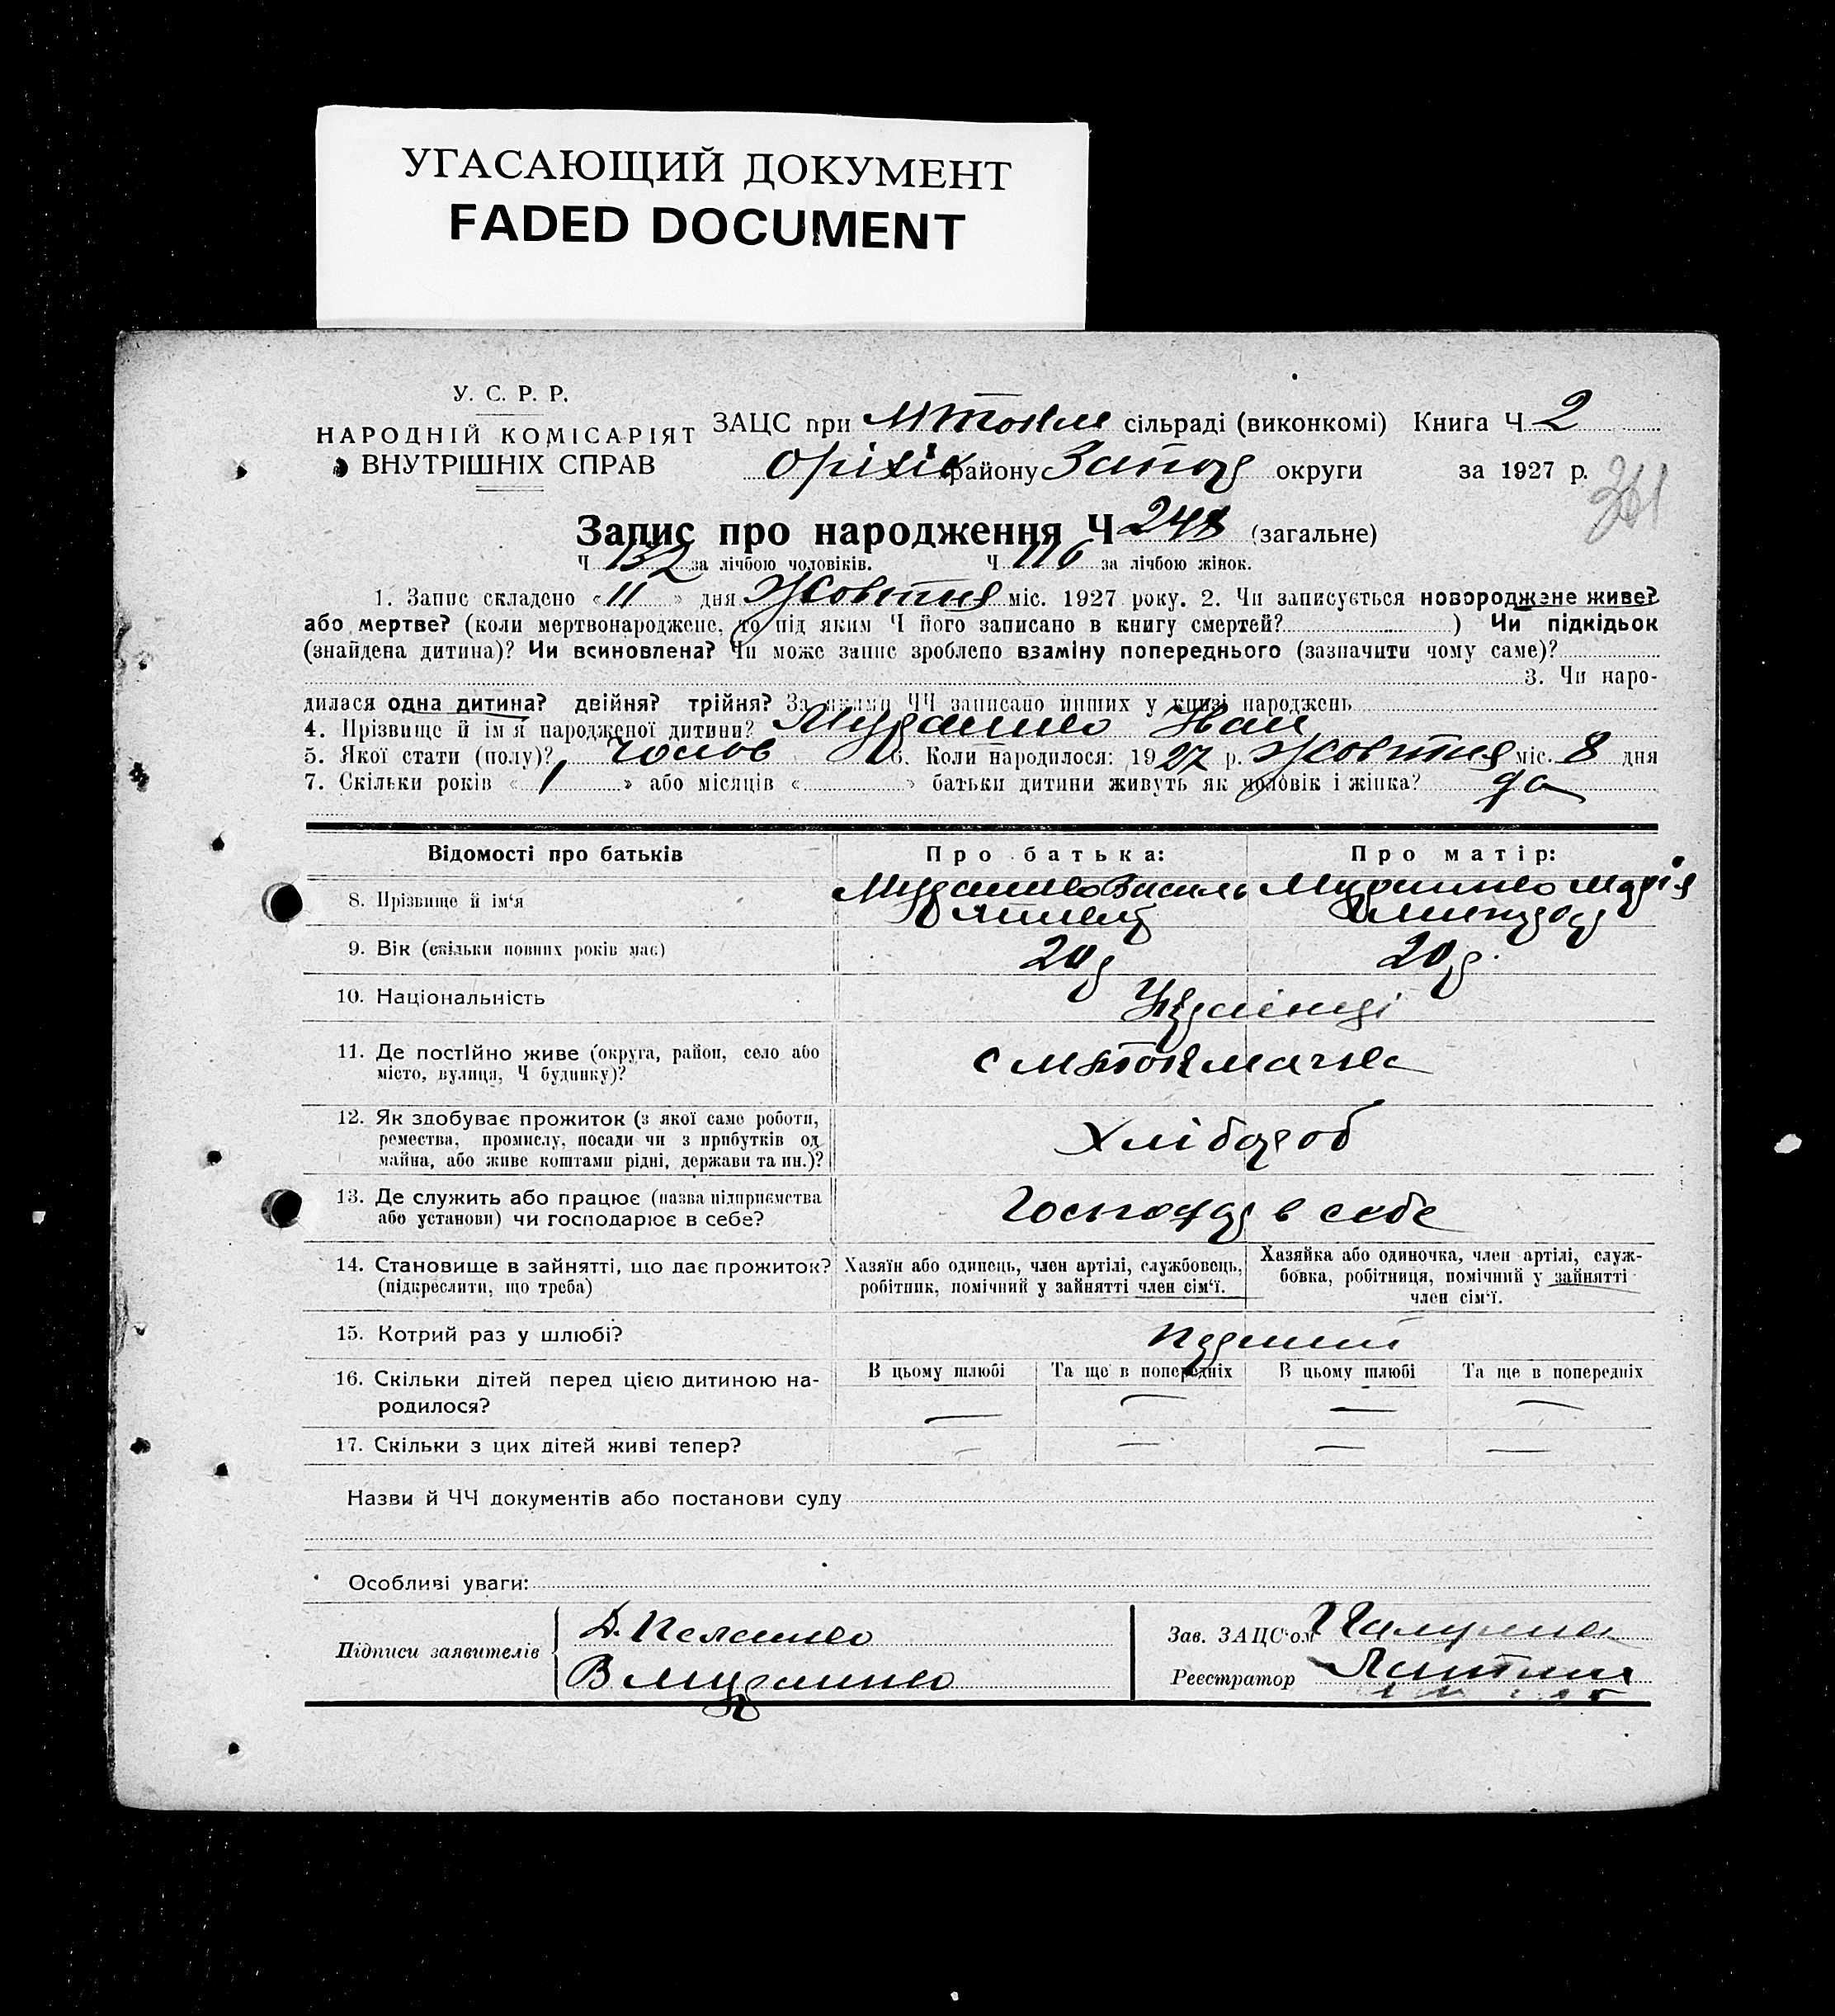 УГАСАЮЩИЙ ДОКУМЕНТ
FADED DOCUMENT
У. С. Р. Р.
НАРОДНІЙ КОМІСАРІЯТ
ВНУТРІШНІХ СПРАВ
ЗАЦС при МТокм сільраді (виконкомі) Книга Ч 2
Оріхів району Запор округи за 1927 р.
Запис про народження Ч 248 (загальне)
Ч 132 за лічбою чоловіків. Ч 116 за лічбою жінок.
1. Запис складено « 11 » дня Жовтня міс. 1927 року. 2. Чи записується новороджене живе?
або мертве? (коли мертвонароджене, то під яким Ч його записано в книгу смертей? ) Чи підкідьок
(знайдена дитина)? Чи всиновлена? Чи може запис зроблено взаміну попереднього (зазначити чому саме)?
3. Чи наро-
дилася одна дитина? двійня? трійня? За якими ЧЧ записано инших у книзі народжень
4. Прізвище й ім'я народженої дитини? Мурашко Іван
5. Якої стати (полу)? чолов 6. Коли народилося: 1927 р. Жовтня міс. 8 дня
7. Скільки років « 1 » або місяців « » батьки дитини живуть як чоловік і жінка? да
Відомості про батьків Про батька: Про матір:
8. Прізвище й ім'я Мурашко Василь Мурашко Марія
9. Вік (скільки повних років має) 20 р 20 р.
10. Національність Українці
11. Де постійно живе (округа, район, село або
місто, вулиця, Ч будинку)? с МТокмачка
12. Як здобуває прожиток (з якої саме роботи,
ремества, промислу, посади чи з прибутків од
майна, або живе коштами рідні, держави та ин.)? Хлібороб
13. Де служить або працює (назва підприємства
або установи) чи господарює в себе? Господар в себе
14. Становище в зайнятті, що дає прожиток?
(підкреслити, що треба)
Хазяїн або одинець, член артілі, службовець,
робітник, помічний у зайнятті член сім'ї.
Хазяйка або одиночка, член артілі, служ-
бовка, робітниця, помічний у зайнятті
член сім'ї.
15. Котрий раз у шлюбі? Перший
16. Скільки дітей перед цією дитиною на-
родилося?
В цьому шлюбі Та ще в попередніх В цьому шлюбі Та ще в попередніх
— — — —
17. Скільки з цих дітей живі тепер? — — — —
Назви й ЧЧ документів або постанови суду
Особливі уваги:
Підписи заявителів
В Мурашко
Зав. ЗАЦС'ом
Реєстратор